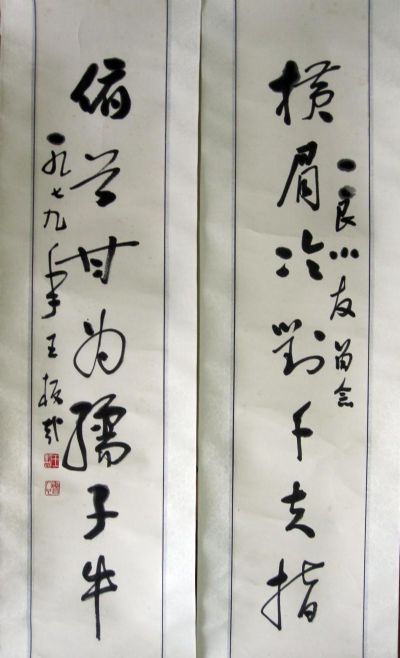 一良小友 留念
横眉冷對千夫指
俯首甘为孺子牛
一九七九年 王振